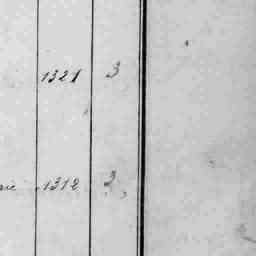 1321 3
1312 3